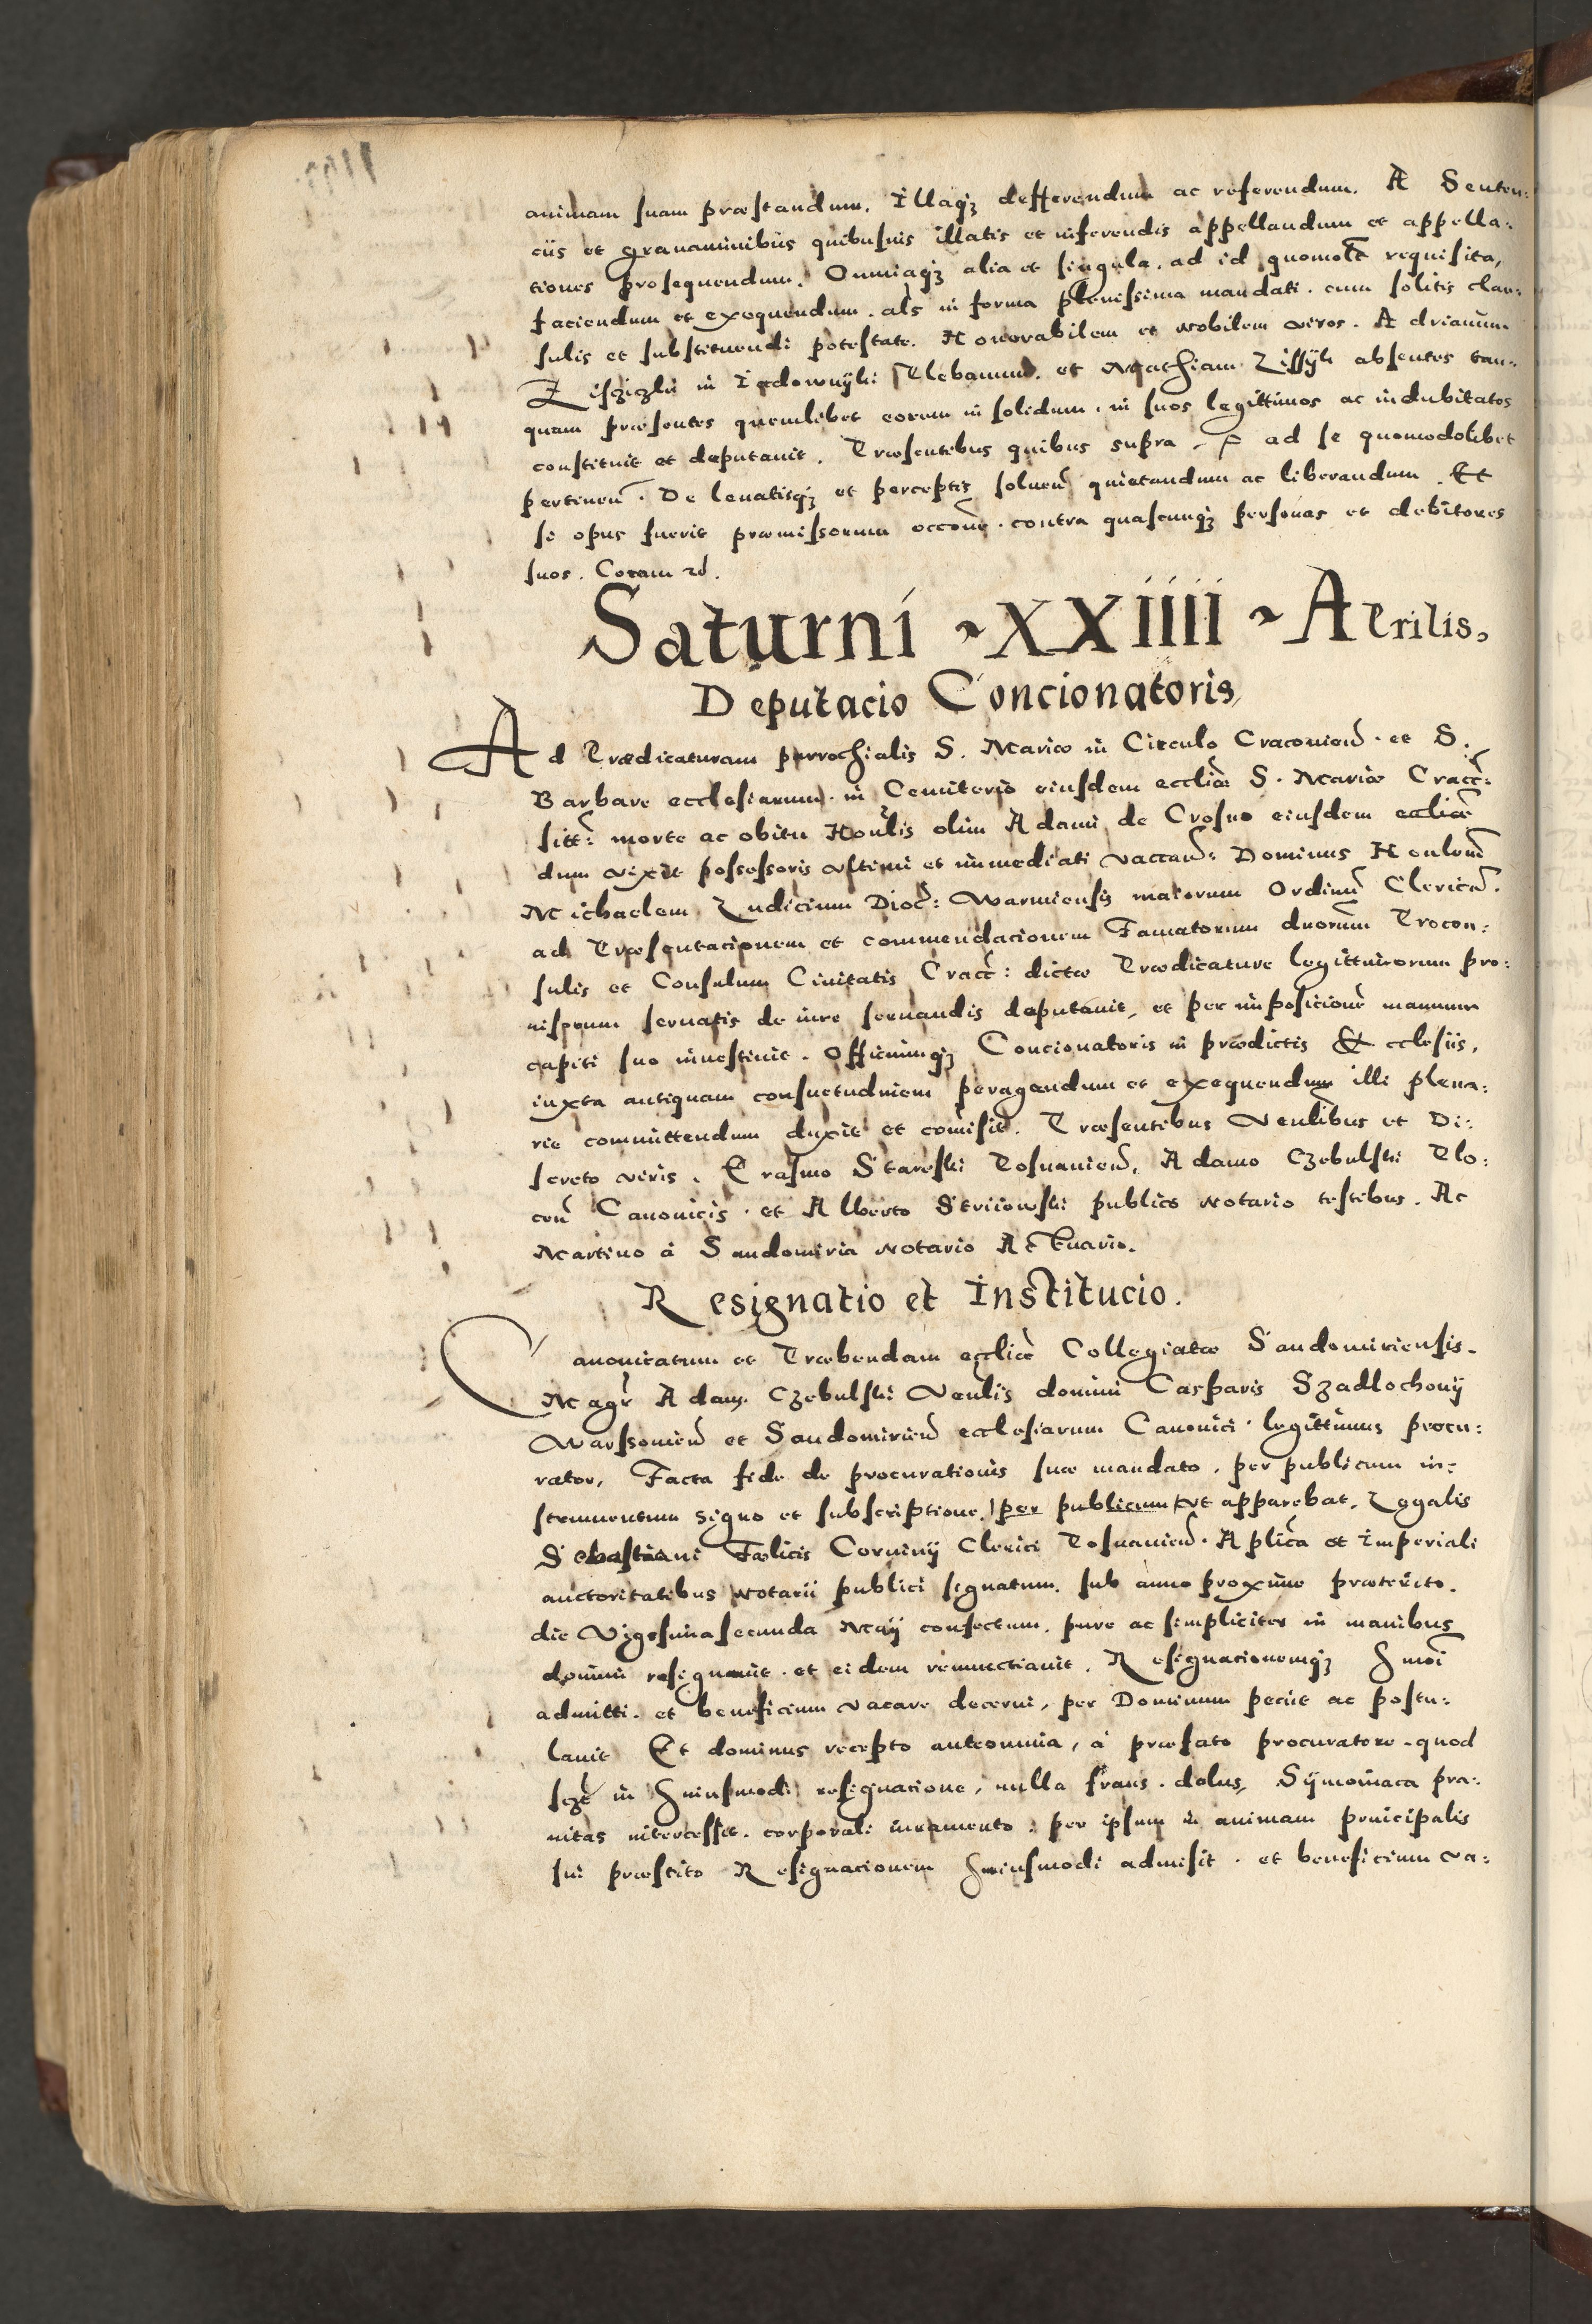 animam suam præstandum. Illaqꝫ defferendum ac referendum. A Senten:
ciis et gravaminibus quibusuis illatis et inferendis appellandum et appella:
tiones prosequendum. Omniaqꝫ alia et singula, ad id quomolt requisita,
faciendum et exequendum. als in forma plenissima mandati. cum solitis clau:
sulis et substituendi potestate. Honorabilem et nobilem viros. Adrianum
in Plebanum. et Mathiam absentes tan:
quam præsentes quemlibet eorum in solidum. in suos legittimos ac indubitatos
constituit et deputauit. Præsentibus quibus supra ad se quomodolibet
pertinen. De leuatisqꝫ et perceptis soluen quietandum ac liberandum. Et
si opus fuerit præmissorum occone. contra quascunqꝫ personas et debitores
suos. Coram
Saturni XXIIII Aprilis.
Deputacio Concionatoris
Ad Prædicaturam parrochialis S. Mariæ in Circulo Cracouien. et S.
Barbare ecclesiarum. in Cemiterio eiusdem eccliæ S. Mariæ Cracc:
sitt: morte ac obitu Honlis olim Adami de Crosno eiusdem eccliæ
dum vixit possessoris vltimi et immediati vaccan: Dominus Honlem
Michaelem Dioc: Warmiensis maiorum Ordinum Clericum.
ad Præsentacionem et commendacionem Famatorum duorum Procon:
sulis et Consulum Ciuitatis Cracc: dictæ Prædicature legittimorum pro:
uisorum seruatis de iure seruandis deputauit, et per imposicione mannum
capiti suo inuestiuit. Officiumqꝫ Concionatoris in prædictis Ecclesiis,
iuxta antiquam consuetudinem peragendum et exequendum illi plena:
rie committendum duxit et comisit. Præsentibus Venlibus et Di:
screto viris. Erasmo Stareski Posnanien, Adamo Czebulski Plo:
cen Canonicis. et Alberto Striiowski publico notario testibus. Ac
Martino à Sandomiria notario Actuario.
Resignatio et Institucio.
Canonicatum et Præbendam eccliæ Collegiatæ Sandomiriensis.
Magr Adam Czebulski Venlis domini Casparis Szadlochouij
Warssouien et Sandomirien ecclesiarum Canonici legittimus procu:
rator, Facta fide de procurationis suæ mandato, per publicum in:
strumentum signo et subscriptione, per publicum vt apparebat,
Sebastiani Fœlicis Coruinij Clerici Posnanien. Aplica et Imperiali
auctoritatibus notarii publici signatum. sub anno proximo præterito.
die Vigesimasecunda Maij confectum. pure ac simpliciter in manibus
domini resignauit. et eidem renunctiauit. Resignacionemqꝫ hmoi
admitti. et beneficium vacare decerni, per Dominum peciit ac postu:
lauit Et dominus recepto anteomnia, à præfato procuratore. quod
sczt in huiusmodi resignacione, nulla fraus. dolus, Symoniaca pra:
uitas intercessit. corporali iuramento. per ipsum in animam principalis
sui præstito Resignacionem huiusmodi admisit. et beneficium va: